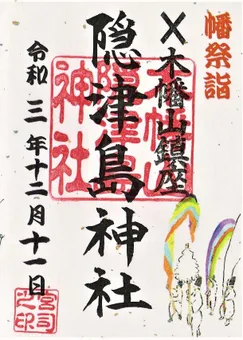 幡祭詣
×木幡山鎮座
隠津島神社
令和三年十二月十一日
木幡山
隠津島
神社
宮司之印